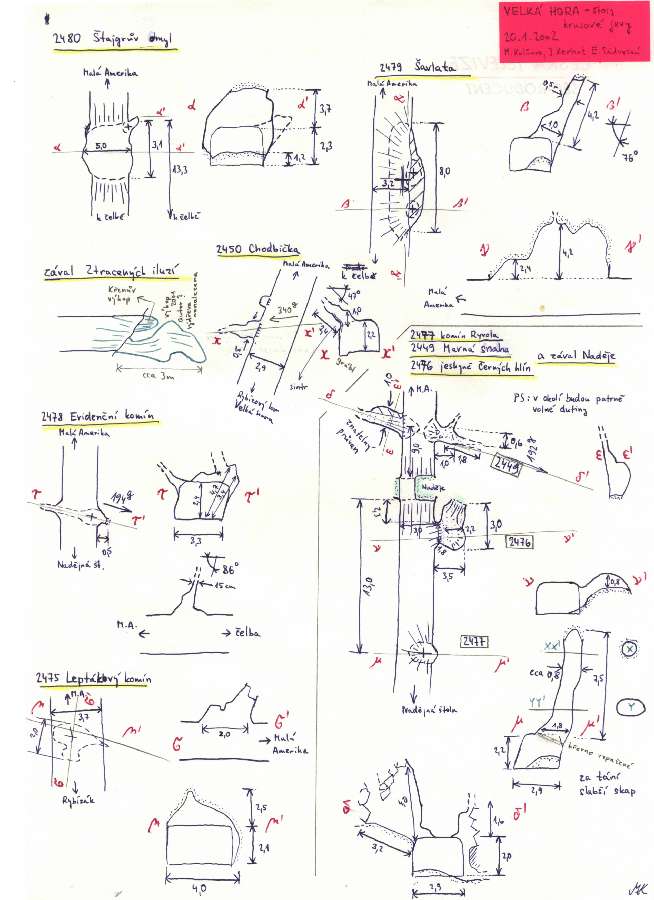 VELKÁ HORA - štoly
krasové jevy
20.1.2002
2480 Štajgrův omyl
Malá Amerika
α
α'
5,0
3,1
13,3
k čelbě
k čelbě
α
α'
3,7
2,3
1,2
2479 Šavlata
Malá Amerika
3,2
8,0
β
β'
β
β'
0,5
1,0
4,2
76°
2,4
4,2
Malá
Amerika
zával Ztracených iluzí
cca 3m
2450 Chodbička
Malá Amerika
340°
2,9
Velká hora
sintr
k čelbě
47°
1,0
2,2
x
x'
x
x'
2477 komín Ryvola
2449 Marná snaha
2476 jeskyně černých hlín
a zával Naděje
PS: v okolí budou patrně
volné dutiny
M.A.
1,0
9,0
0,6
192°
1,0
1,8
2449
δ
δ'
ε
ε'
ε
ε'
Naděje
3,0
2,2
3,0
3,5
2476
ν
ν'
13,0
2477
μ
μ'
Nadějná štola
ν
ν'
0,8
xx'
X
cca 0,8
7,5
YY'
Y
μ
μ'
1,8
2,2
2,9
za tání
slabší skap
2478 Evidenční komín
Malá Amerika
τ
τ'
194°
0,5
Nadějná št.
τ
τ'
3,3
86°
15cm
M.A.
čelba
2475 Leptákový komín
M.A.
3,7
Rybízák
2,0
Malá
Amerika
2,5
2,1
4,0
4,0
3,2
1,6
2,0
2,9
MK